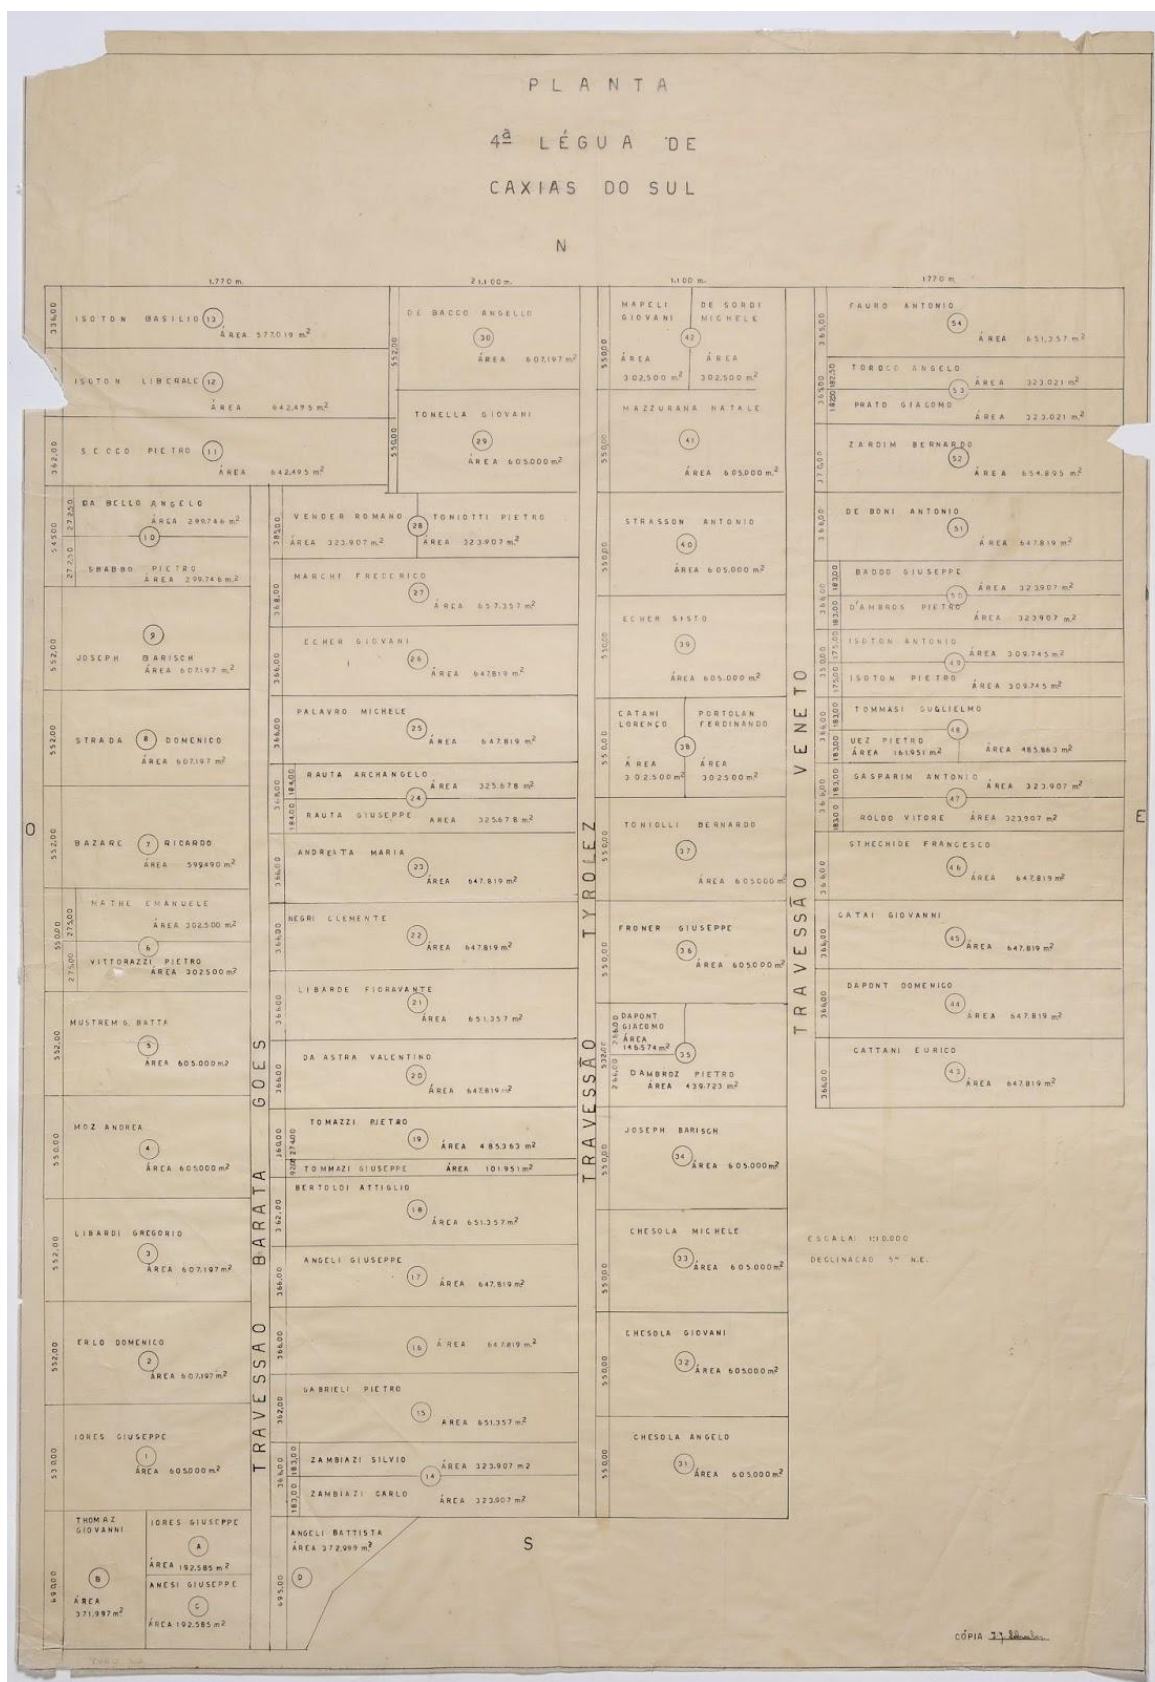 PLANTA
4ª LÉGUA DE
CAXIAS DO SUL
N
1.770 m.
1.100 m.
1770 m.
336,00
ISOTON BASILIO 13
ÁREA 577.019 m²
ISOTON LIBERALE 12
ÁREA 642.495 m²
362,00
SECCO PIETRO 11
ÁREA 642.495 m²
545,00
272,50
DA BELLO ANGELO
ÁREA 299.746 m²
10
272,50
SBABBO PIETRO
ÁREA 299.746 m²
552,00
9
JOSEPH BARISCH
ÁREA 607.197 m²
552,00
STRADA 8 DOMENICO
ÁREA 607.197 m²
552,00
BAZARE 7 RICARDO
ÁREA 599.490 m²
550,00
275,00
MATHE EMANUELE
ÁREA 302.500 m²
6
275,00
VITTORAZZI PIETRO
ÁREA 302.500 m²
552,00
MUSTREM G. BATTA
5
ÁREA 605.000 m²
550,00
MOZ ANDREA
4
ÁREA 605.000 m²
552,00
LIBARDI GREGORIO
3
ÁREA 607.197 m²
552,00
ERLO DOMENICO
2
ÁREA 607.197 m²
550,00
IORES GIUSEPPE
1
ÁREA 605.000 m²
690,00
THOMAZ GIOVANNI
B
ÁREA
371.997 m²
IORES GIUSEPPE
A
ÁREA 192.585 m²
ANESI GIUSEPPE
C
ÁREA 192.585 m²
TRAVESSÃO BARATA GOES
552,00
DE BACCO ANGELLO
30
ÁREA 607.197 m²
550,00
TONELLA GIOVANI
29
ÁREA 605.000 m²
VENDER ROMANO 28 TONIOTTI PIETRO
ÁREA 323.907 m² ÁREA 323.907 m²
368,00
MARCHI FREDERICO
27
ÁREA 657.357 m²
366,00
ECHER GIOVANI
26
ÁREA 647.819 m²
366,00
PALAVRO MICHELE
25
ÁREA 647.819 m²
368,00
184,00
RAUTA ARCHANGELO
ÁREA 325.678 m²
24
184,00
RAUTA GIUSEPPE ÁREA 325.678 m²
366,00
ANDREATA MARIA
23
ÁREA 647.819 m²
366,00
NEGRI CLEMENTE
22
ÁREA 647.819 m²
366,00
LIBARDE FIORAVANTE
21
ÁREA 651.357 m²
366,00
DA ASTRA VALENTINO
20
ÁREA 647.819 m²
360,00
274,00
TOMAZZI PIETRO
19
ÁREA 485.363 m²
92,00
TOMMAZI GIUSEPPE ÁREA 101.951 m²
362,00
BERTOLDI ATTIGLIO
18
ÁREA 651.357 m²
366,00
ANGELI GIUSEPPE
17
ÁREA 647.819 m²
366,00
16 ÁREA 647.819 m²
362,00
GABRIELI PIETRO
15
ÁREA 651.357 m²
366,00
183,00
ZAMBIAZI SILVIO
ÁREA 323.907 m²
14
183,00
ZAMBIAZI CARLO
ÁREA 323.907 m²
695,00
ANGELI BATTISTA
ÁREA 372.999 m²
D
TRAVESSÃO TYROLEZ
550,00
MAPELI GIOVANI
ÁREA
302.500 m²
42
DE SORDI MICHELE
ÁREA
302.500 m²
550,00
MAZZURANA NATALE
41
ÁREA 605.000 m²
550,00
STRASSON ANTONIO
40
ÁREA 605.000 m²
550,00
ECHER SISTO
39
ÁREA 605.000 m²
550,00
CATANI LORENÇO
ÁREA
302.500 m²
38
PORTOLAN FERDINANDO
ÁREA
302.500 m²
550,00
TONIOLLI BERNARDO
37
ÁREA 605.000 m²
550,00
FRONER GIUSEPPE
36
ÁREA 605.000 m²
532,00
266,00
DAPONT GIACOMO
ÁREA
146.574 m²
35
266,00
DAMBROZ PIETRO
ÁREA 439.723 m²
550,00
JOSEPH BARISCH
34
ÁREA 605.000 m²
550,00
CHESOLA MICHELE
33
ÁREA 605.000 m²
550,00
CHESOLA GIOVANI
32
ÁREA 605.000 m²
550,00
CHESOLA ANGELO
31
ÁREA 605.000 m²
TRAVESSÃO VENETO
365,00
FAURO ANTONIO
54
ÁREA 651.357 m²
365,00
182,50
TOROCO ANGELO
ÁREA 323.021 m²
53
182,50
PRATO GIACOMO
ÁREA 323.021 m²
370,00
ZARDIM BERNARDO
52
ÁREA 654.895 m²
366,00
DE BONI ANTONIO
51
ÁREA 647.819 m²
366,00
183,00
BADDO GIUSEPPE
ÁREA 323.907 m²
50
183,00
D'AMBROS PIETRO
ÁREA 323.907 m²
350,00
175,00
ISOTON ANTONIO
ÁREA 309.745 m²
49
175,00
ISOTON PIETRO
ÁREA 309.745 m²
366,00
183,00
TOMMASI GUGLIELMO
48
183,00
UEZ PIETRO
ÁREA 161.951 m² ÁREA 485.863 m²
366,00
183,00
GASPARIM ANTONIO
ÁREA 323.907 m²
47
183,00
ROLDO VITORE ÁREA 323.907 m²
366,00
STHECHIDE FRANCESCO
46
ÁREA 647.819 m²
366,00
CATAI GIOVANNI
45
ÁREA 647.819 m²
366,00
DAPONT DOMENICO
44
ÁREA 647.819 m²
366,00
CATTANI EURICO
43
ÁREA 647.819 m²
O
E
ESCALA: 1:10.000
DECLINAÇÃO 5° N.E.
S
CÓPIA